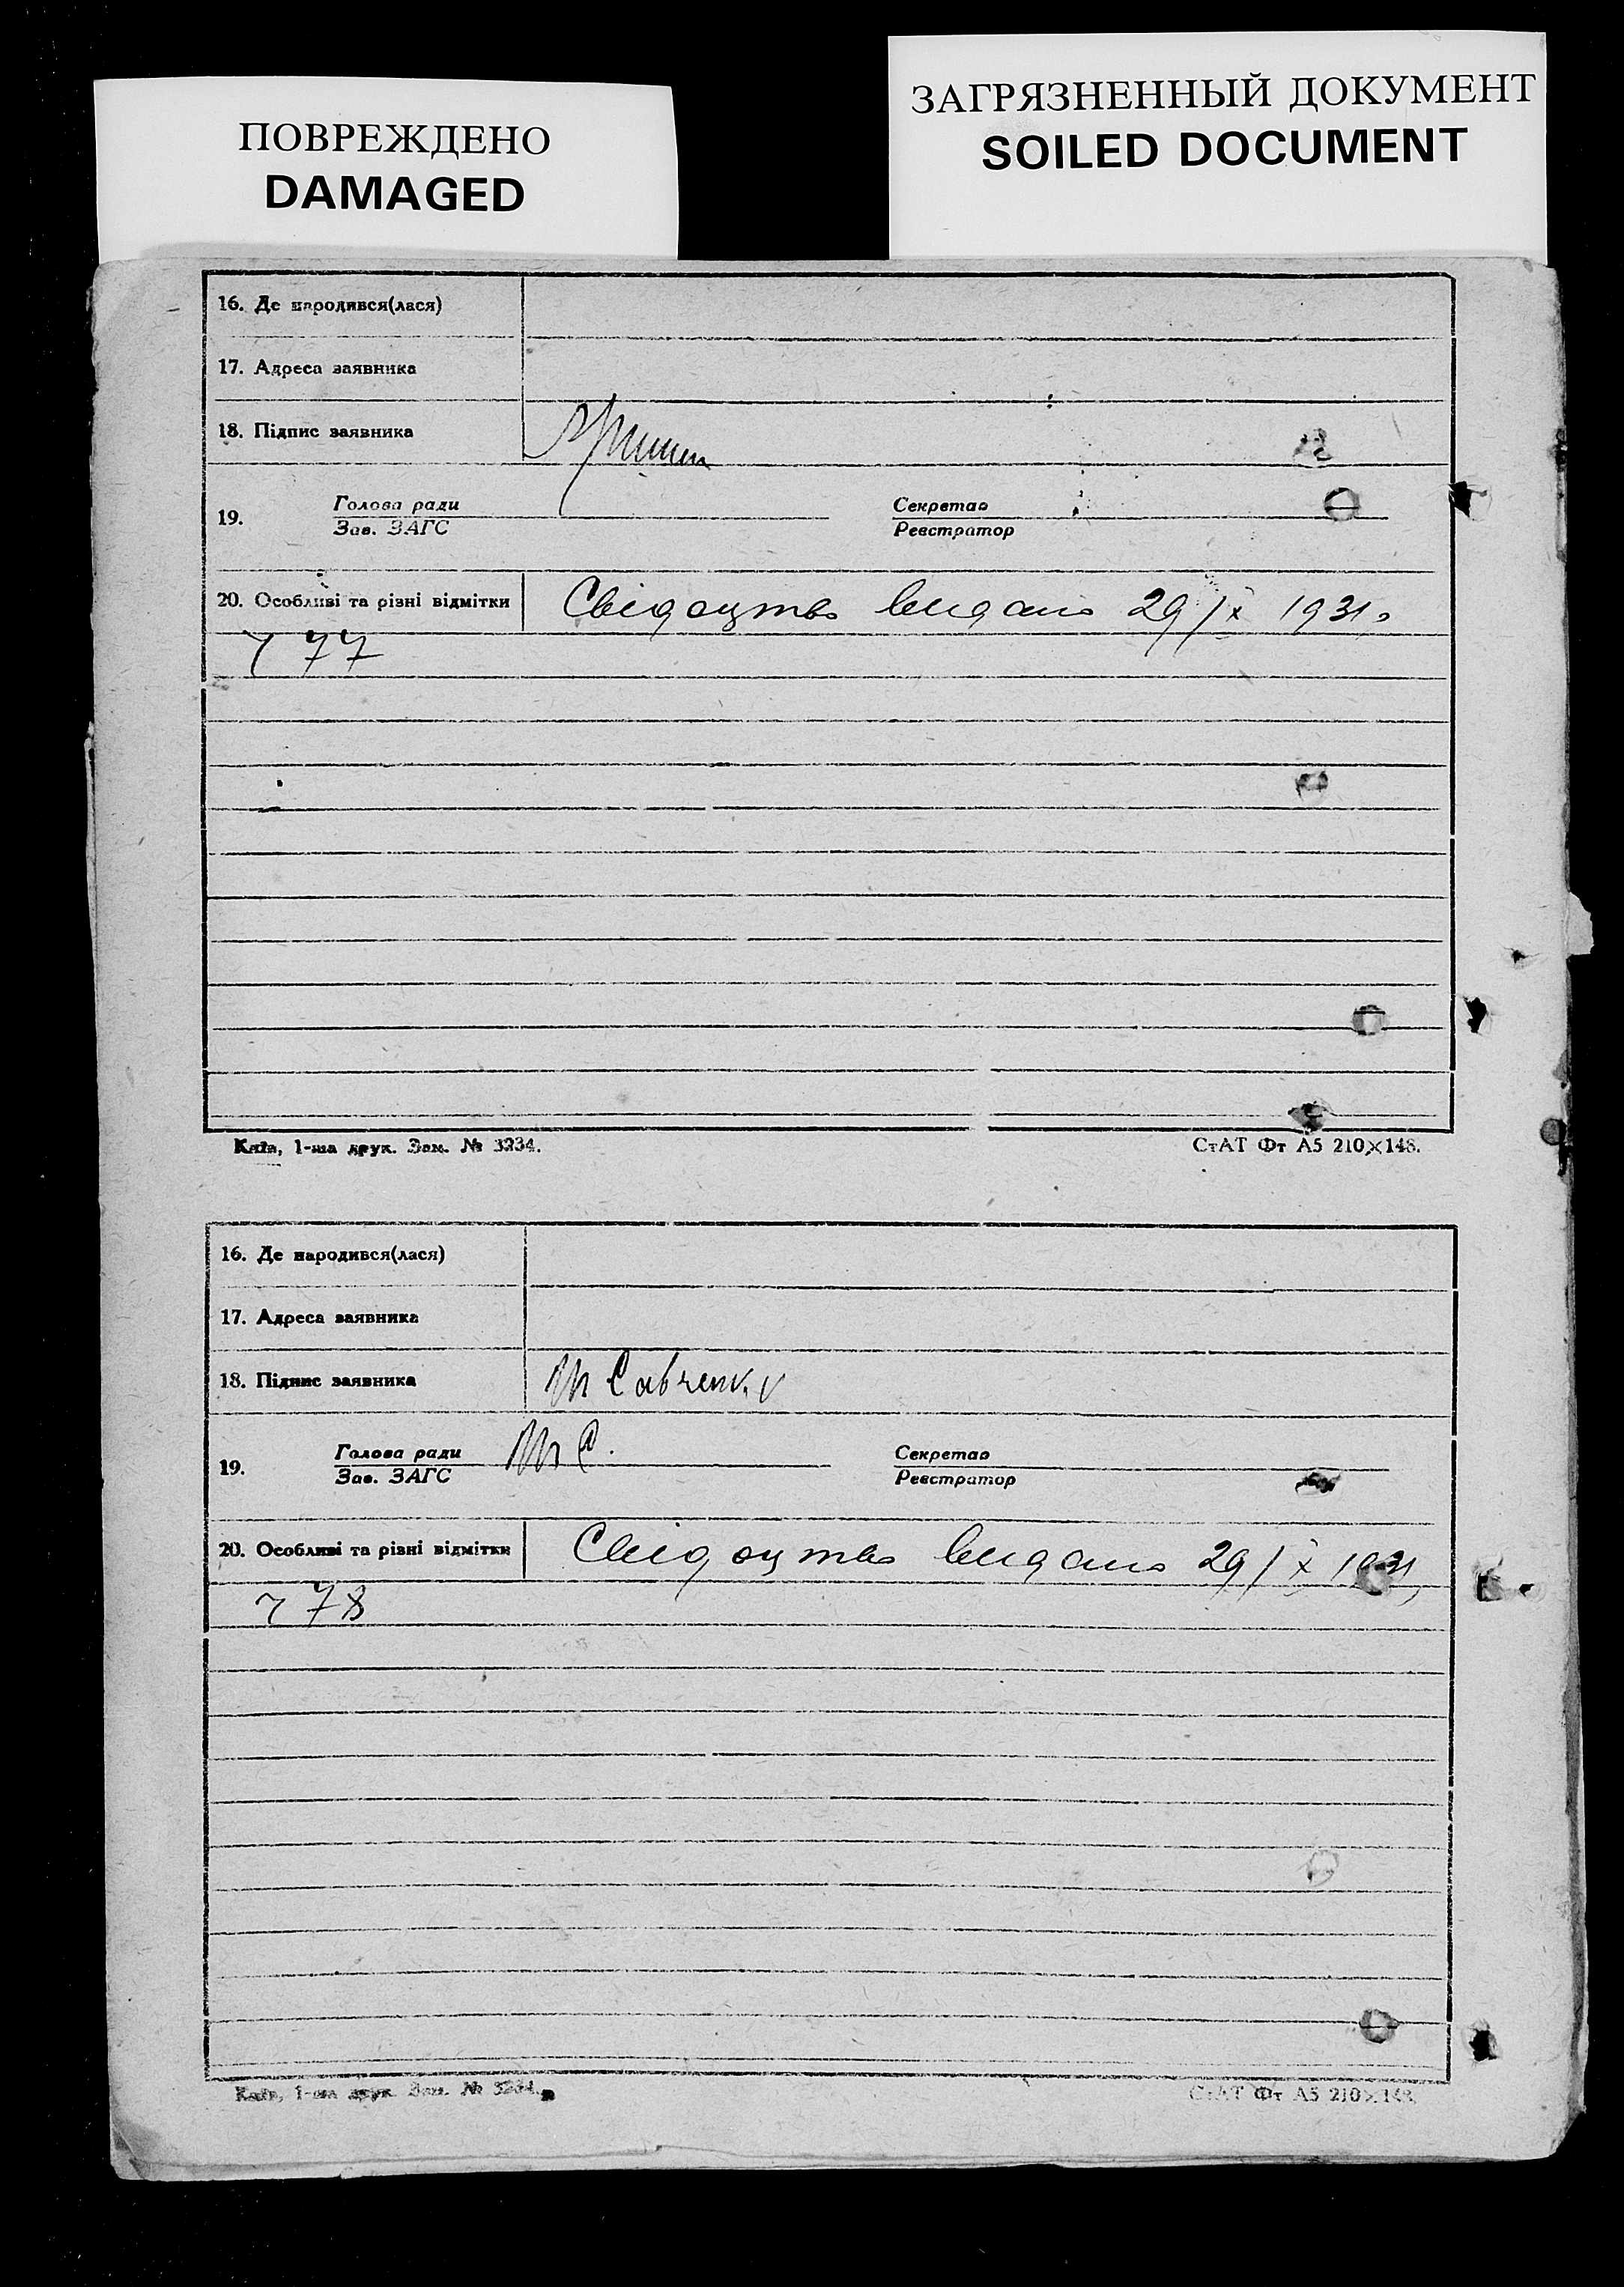 ПОВРЕЖДЕНО
DAMAGED
ЗАГРЯЗНЕННЫЙ ДОКУМЕНТ
SOILED DOCUMENT
16. Де народився(лася)
17. Адреса заявника
18. Підпис заявника
19. Голова ради Секретар
Зав. ЗАГС Реєстратор
20. Особливі та різні відмітки Свідоцтво видано 29/ІX 1931
77
Київ, 1-ша друк. Зам. № 3234. СтАТ Фт А5 210×148.
16. Де народився(лася)
17. Адреса заявника
18. Підпис заявника Савченк
19. Голова ради Секретар
Зав. ЗАГС Реєстратор
20. Особливі та різні відмітки Свідоцтво видано 29/ІX 1931
78
Київ, 1-ша друк. Зам. № 3234. СтАТ Фт А5 210×148.